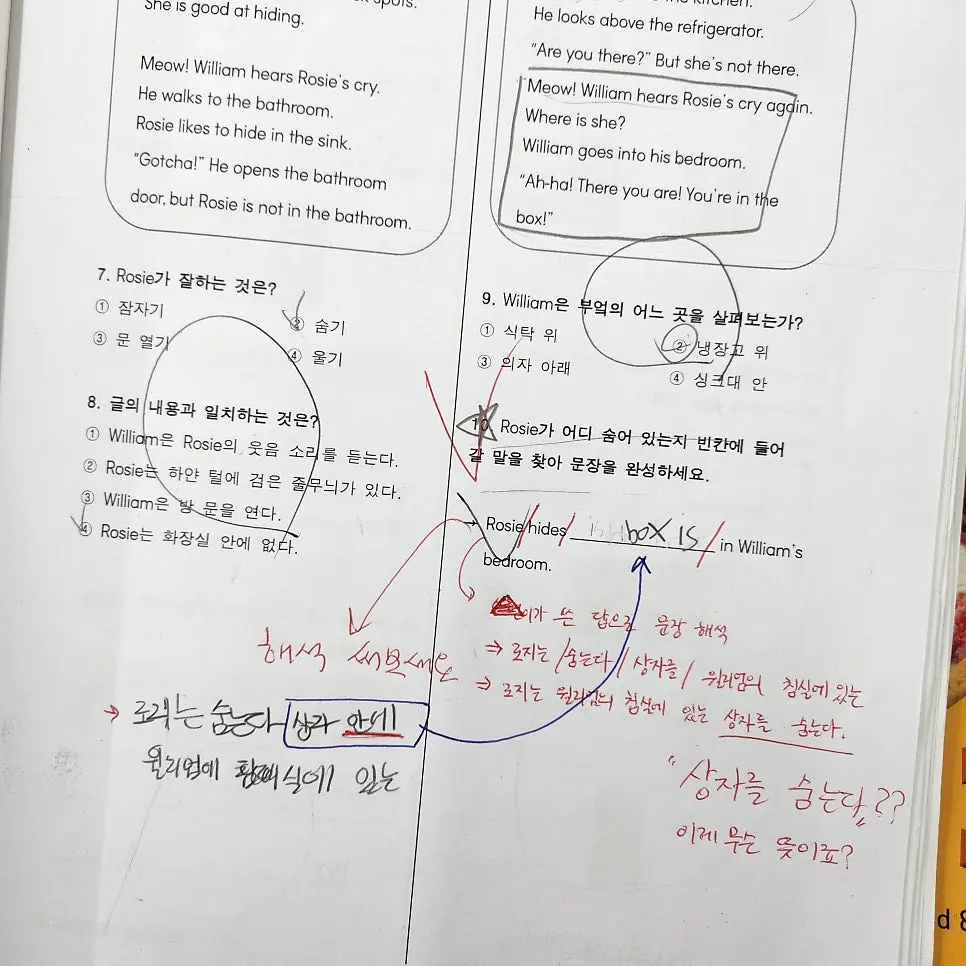 spots.
She is good at hiding.
Meow! William hears Rosie's cry.
He walks to the bathroom.
Rosie likes to hide in the sink.
"Gotcha!" He opens the bathroom
door, but Rosie is not in the bathroom.
7. Rosie가 잘하는 것은?
① 잠자기
② 숨기
③ 문 열기
④ 울기
8. 글의 내용과 일치하는 것은?
① William은 Rosie의 웃음 소리를 듣는다.
② Rosie는 하얀 털에 검은 줄무늬가 있다.
③ William은 방 문을 연다.
④ Rosie는 화장실 안에 없다.
해석 써보세요
→ 로지는 숨는다 상자 안에
윌리엄에 실에 있는
kitchen.
He looks above the refrigerator.
"Are you there?" But she's not there.
Meow! William hears Rosie's cry again.
Where is she?
William goes into his bedroom.
"Ah-ha! There you are! You're in the
box!"
9. William은 부엌의 어느 곳을 살펴보는가?
① 식탁 위
② 냉장고 위
③ 의자 아래
④ 싱크대 안
10. Rosie가 어디 숨어 있는지 빈칸에 들어
갈 말을 찾아 문장을 완성하세요.
→ Rosie/hides/ box is / in William's
bedroom.
이가 쓴 답으로 문장 해석
⇒ 로지는 /숨는다/ 상자를/ 윌리엄의 침실에 있는
⇒ 로지는 윌리엄의 침실에 있는 상자를 숨는다.
"상자를 숨는다"??
이게 무슨 뜻이죠?
d 8